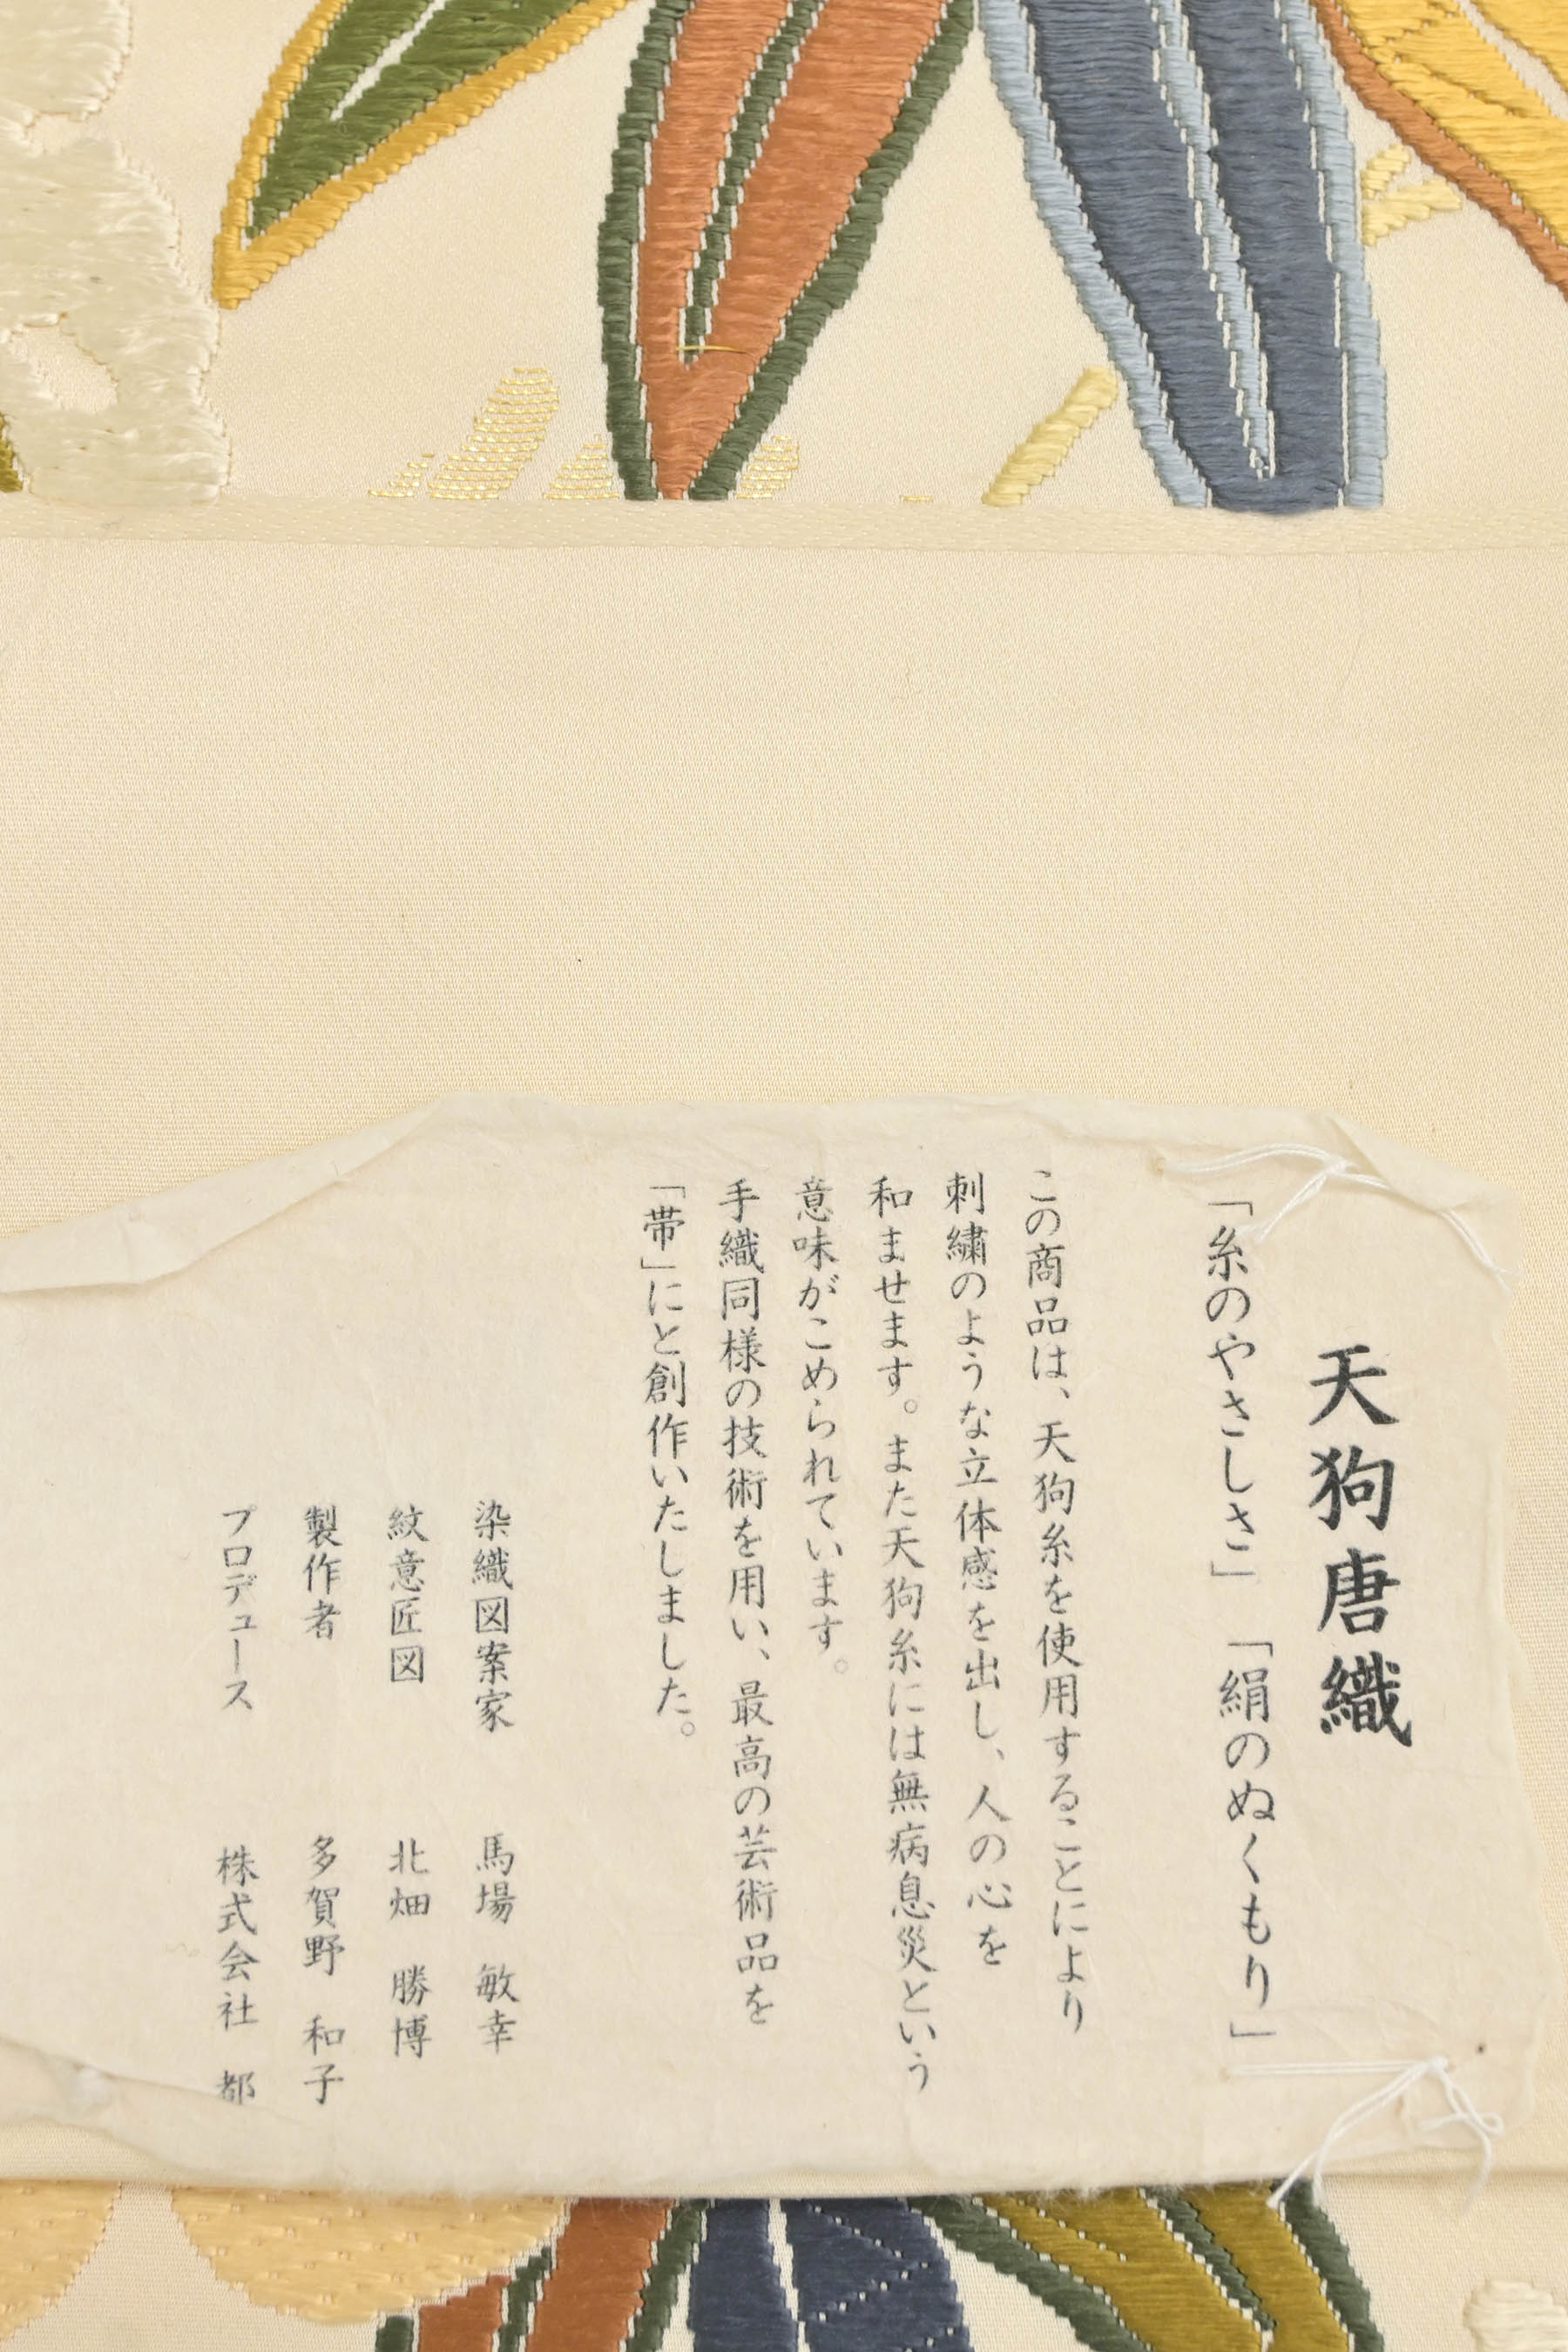 天狗唐織
「糸のやさしさ」「絹のぬくもり」
この商品は、天狗糸を使用することにより
刺繍のような立体感を出し、人の心を
和ませます。また天狗糸には無病息災という
意味がこめられています。
手織同様の技術を用い、最高の芸術品を
「帯」にと創作いたしました。
染織図案家 馬場 敏幸
紋意匠図 北畑 勝博
製作者 多賀野 和子
プロデュース 株式会社 都